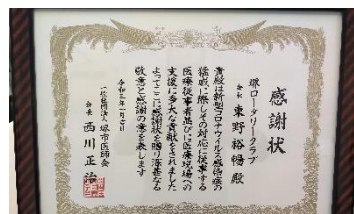 感謝状
堺ロータリークラブ
会長 東野裕暢殿
貴殿は新型コロナウイルス感染症の
猛威に際しその対応に従事する
医療従事者並びに医療現場への
支援に多大な貢献をされました
よってここに感謝状を贈り深甚なる
敬意と感謝の意を表します
令和三年一月
一般社団法人 堺市医師会
会長 西川正治